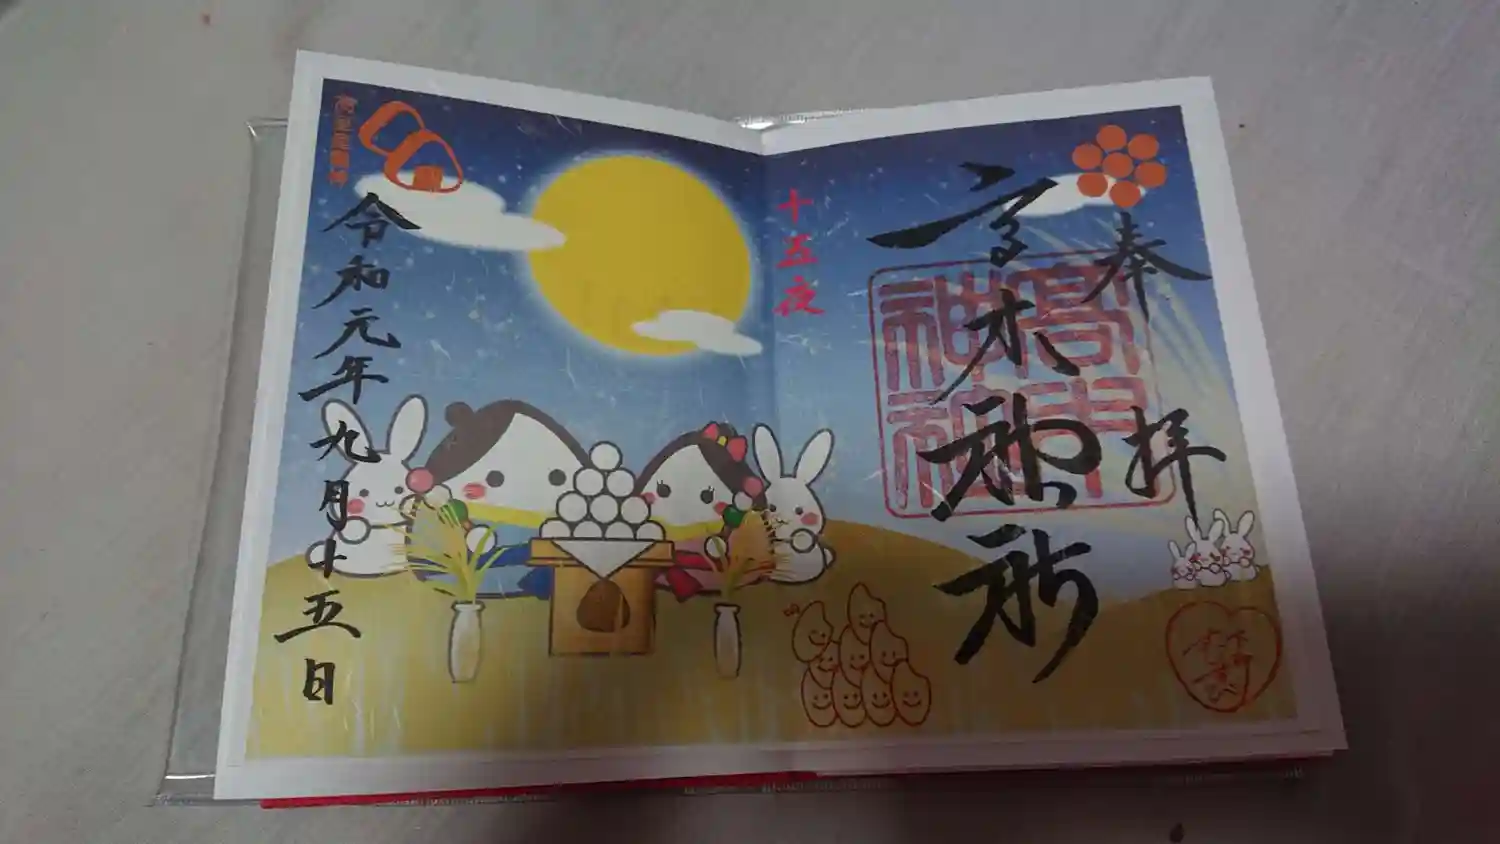 奉拝
高木神社
高木神社
十五夜
令和元年九月十五日